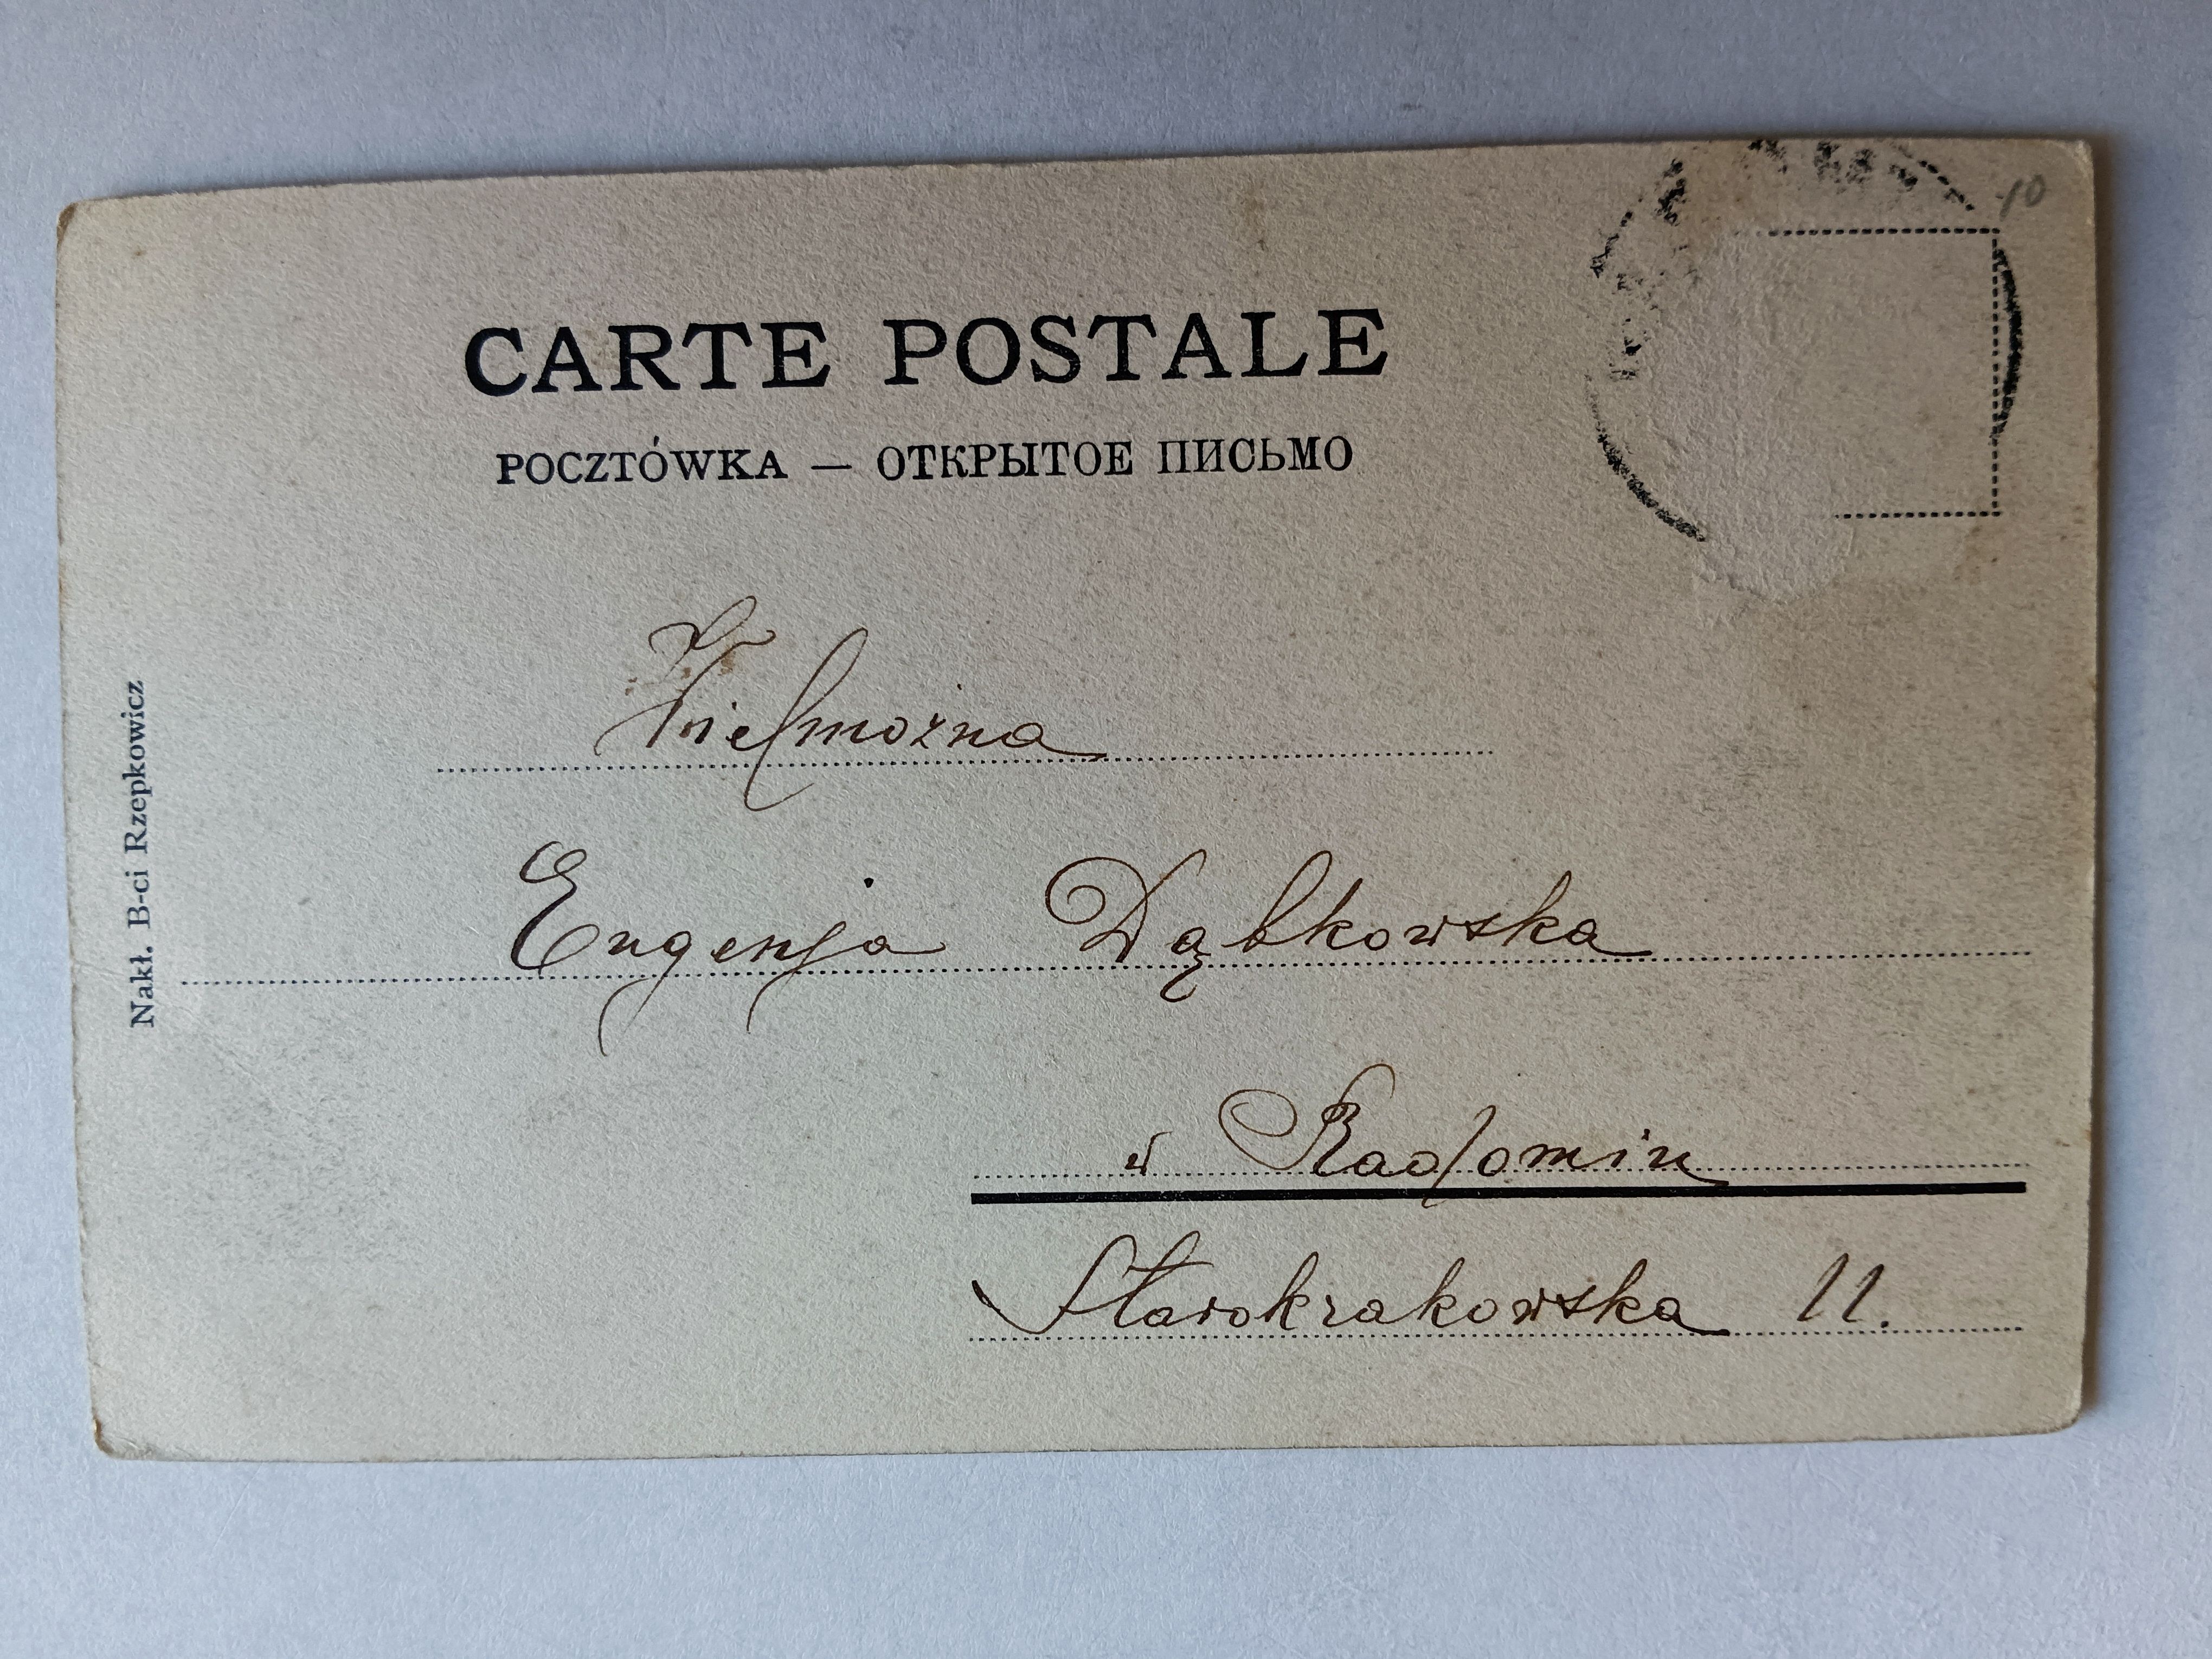 CARTE POSTALE
POCZTÓWKA — ОТКРЫТОЕ ПИСЬМО
10
Wielmożna
Eugenja Dąbkowska
w Radomiu
Starokrakowska 11.
Nakł. B-ci Rzepkowicz